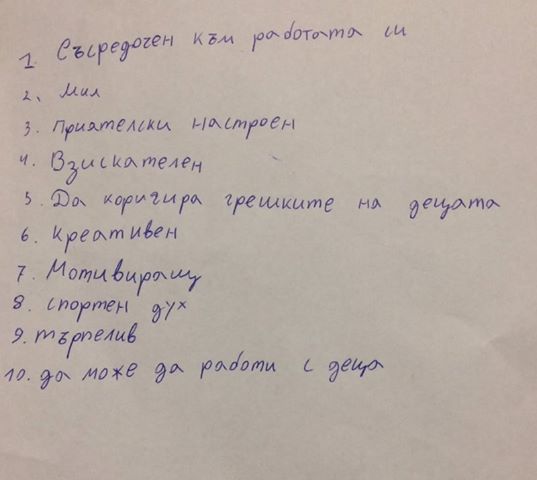 1. Съсредочен към работата си
2. Мил
3. Приятелски настроен
4. Взискателен
5. Да коригира грешките на децата
6. Креативен
7. Мотивиращ
8. спортен дух
9. търпелив
10. да може да работи с деца